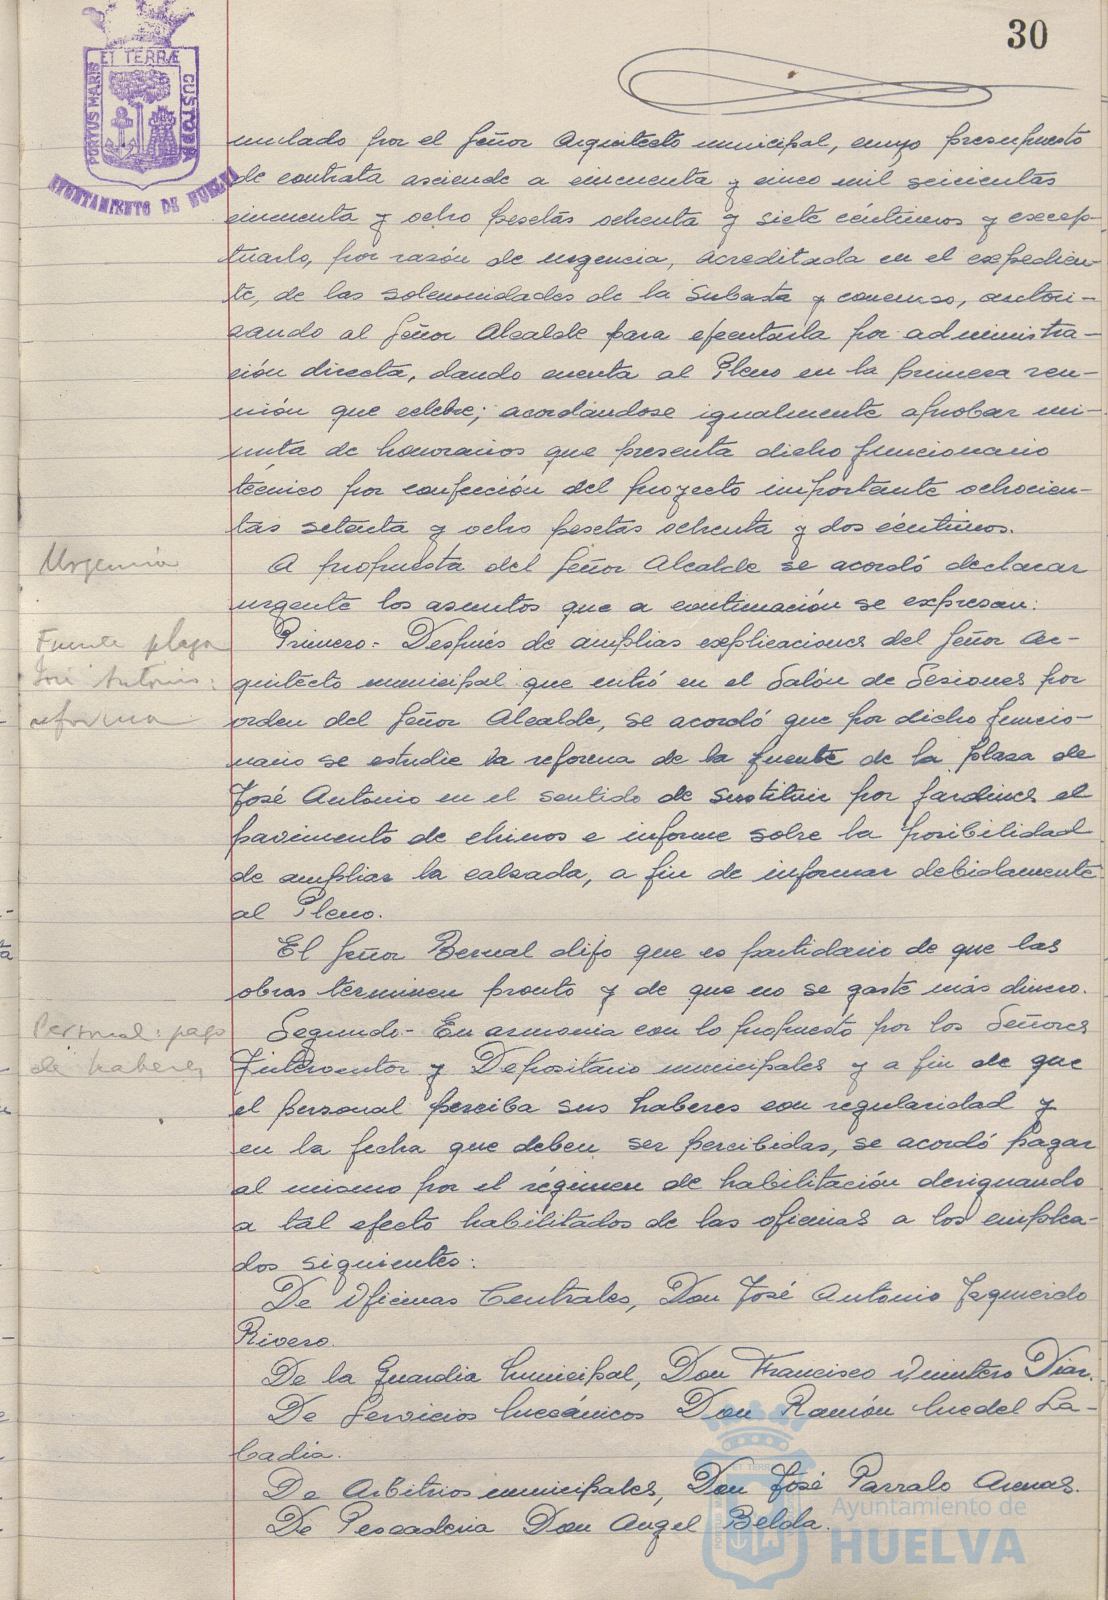 30
ET TERRÆ
PORTUS MARIS
CUSTODIA
AYUNTAMIENTO DE HUELVA
mulado por el Señor Arquitecto municipal, cuyo presupuesto
de contrata asciende a cincuenta y cinco mil seiscientas
cincuenta y ocho pesetas ochenta y siete céntimos y excep-
tuarlo, por razón de urgencia, acreditada en el expedien-
te, de las solemnidades de la Subasta y concurso, autori-
zando al Señor Alcalde para ejecutarla por administra-
ción directa, dando cuenta al Pleno en la primera reu-
nión que celebre; acordándose igualmente aprobar mi-
nuta de honorarios que presenta dicho funcionario
técnico por confección del proyecto importante ochocien-
tas setenta y ocho pesetas ochenta y dos céntimos.
Urgencia
A propuesta del Señor Alcalde se acordó declarar
urgente los asuntos que a continuación se expresan:
Fuente plaza
José Antonio:
reforma
Primero.- Después de amplias explicaciones del Señor Ar-
quitecto municipal que entró en el Salón de Sesiones por
orden del Señor Alcalde, se acordó que por dicho funcio-
nario se estudie la reforma de la fuente de la plaza de
José Antonio en el sentido de sustituir por jardines el
pavimento de chinos e informe sobre la posibilidad
de ampliar la calzada, a fin de informar debidamente
al Pleno.
El Señor Bernal dijo que es partidario de que las
obras terminen pronto y de que no se gaste más dinero.
Personal: pago
de haberes
Segundo.- En armonía con lo propuesto por los Señores
Interventor y Depositario municipales y a fin de que
el personal perciba sus haberes con regularidad y
en la fecha que deben ser percibidas, se acordó pagar
al mismo por el régimen de habilitación designando
a tal efecto habilitados de las oficinas a los emplea-
dos siguientes:
De Oficinas Centrales, Don José Antonio Izquierdo
Rivero.
De la Guardia Municipal, Don Francisco Quintero Díaz.
De Servicios Mecánicos Don Ramón Muedel La-
badía.
De Arbitrios municipales, Don José Parralo Arenas.
De Pescadería Don Angel Belda.
Ayuntamiento de
HUELVA